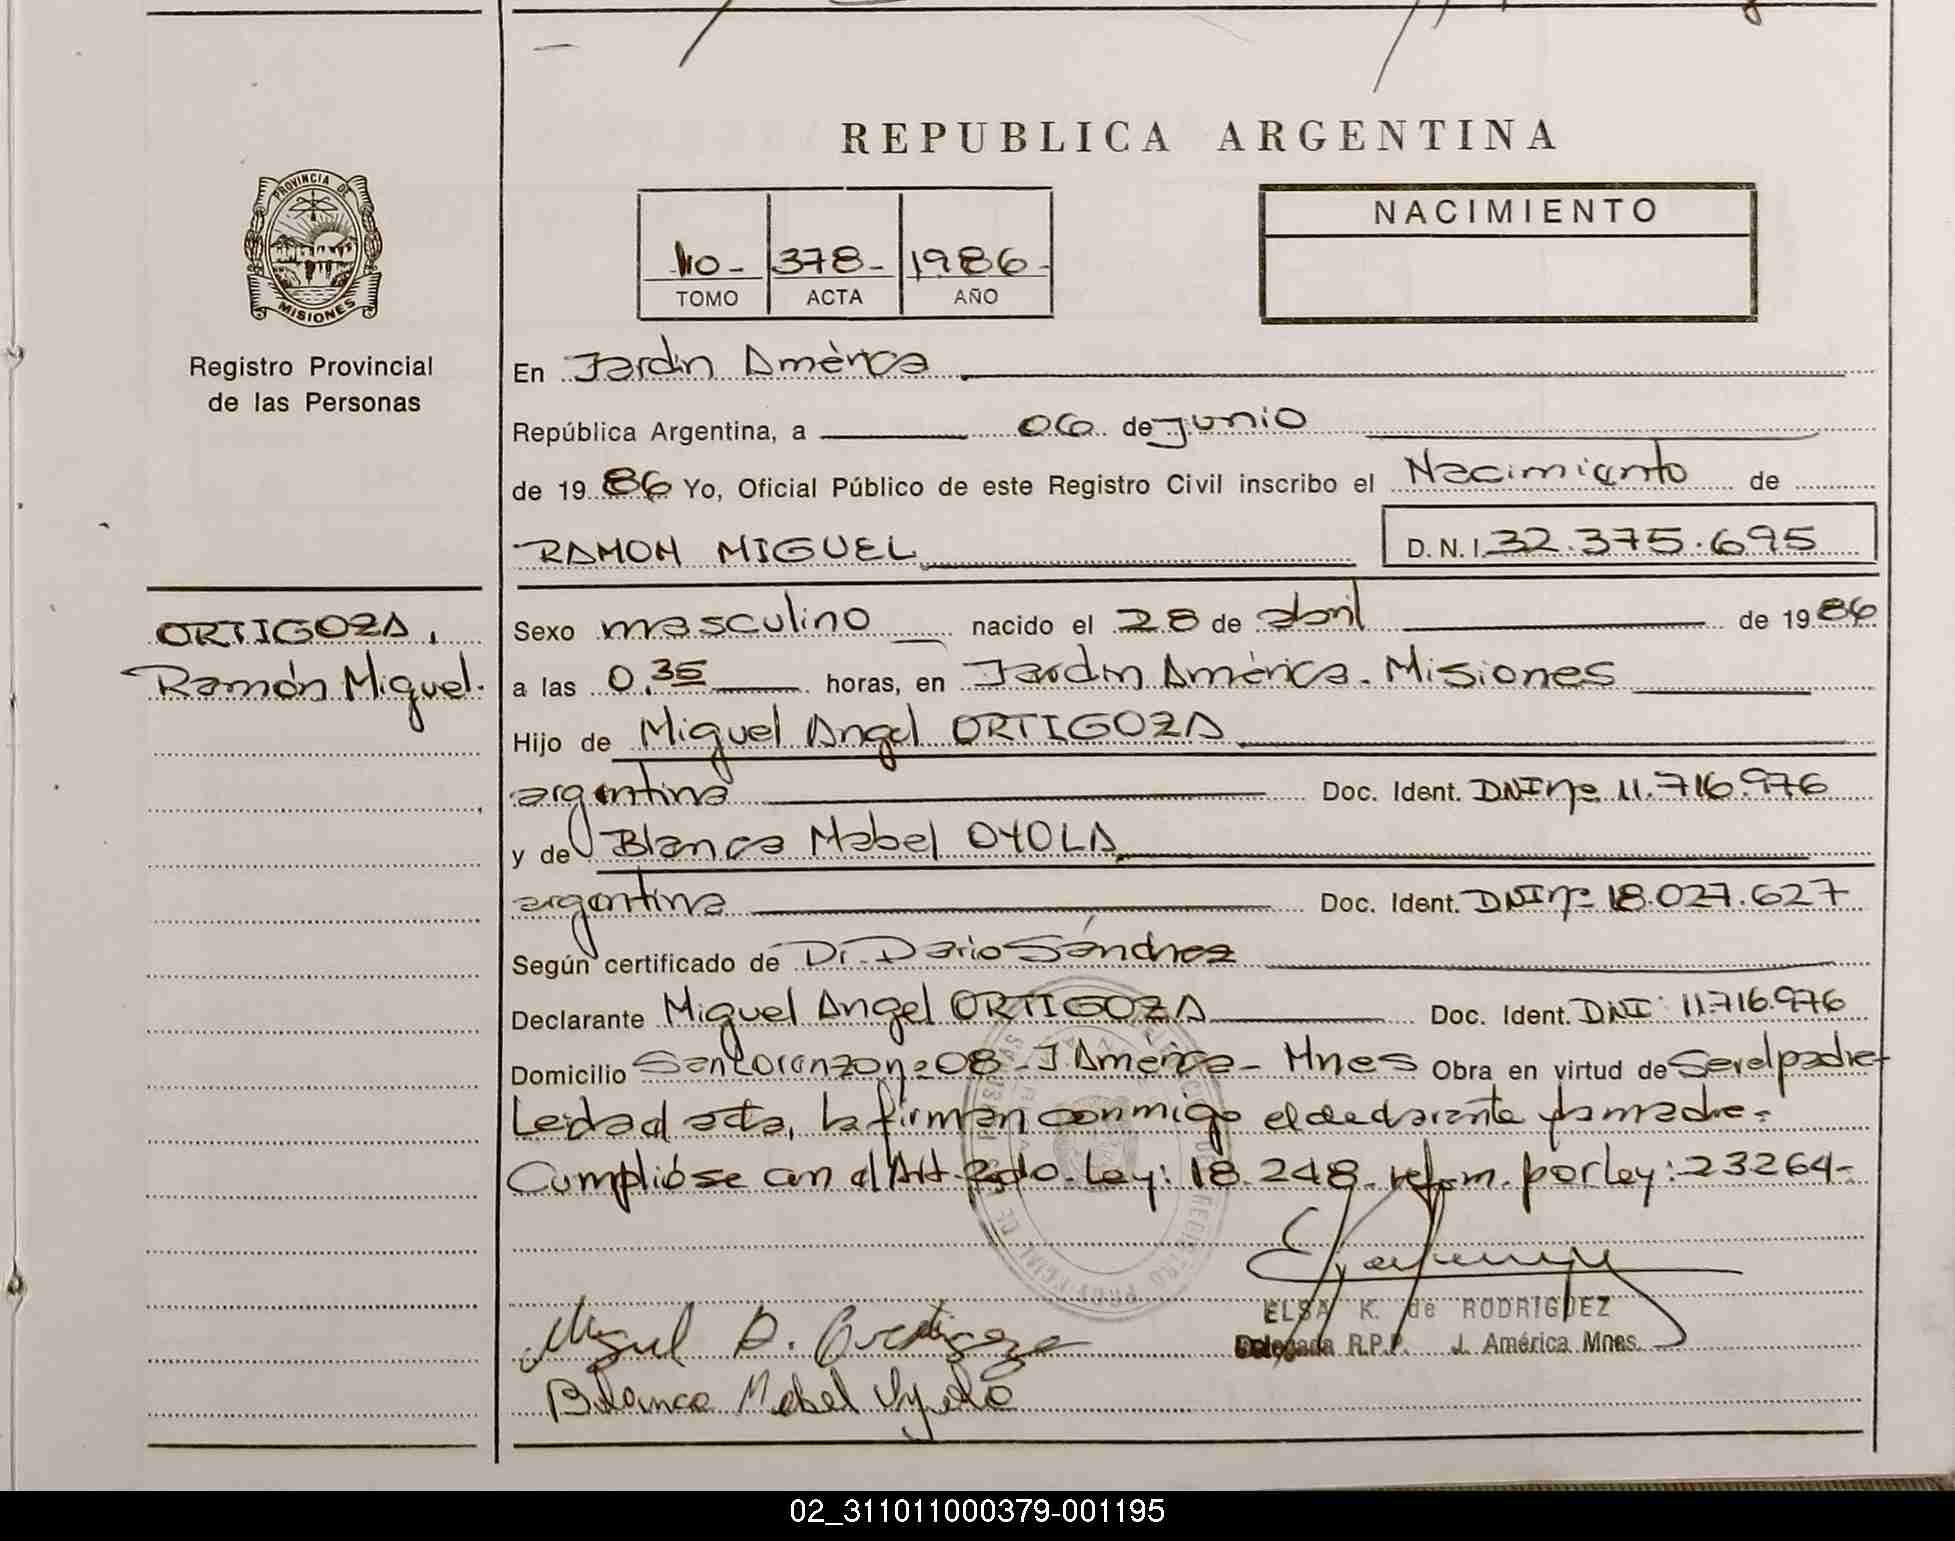 REPUBLICA ARGENTINA
PROVINCIA DE
MISIONES
Registro Provincial
de las Personas
NACIMIENTO
378- 1986-
TOMO ACTA AÑO
En Jardín América
República Argentina, a 06 de junio
de 1986 Yo, Oficial Público de este Registro Civil inscribo el Nacimiento de
RAMON MIGUEL D.N.I. 32.375.695
ORTIGOZA,
Ramón Miguel.
Sexo masculino nacido el 28 de abril de 1986
a las 0,35 horas, en Jardín América. Misiones
Hijo de Miguel Angel ORTIGOZA
argentina Doc. Ident. DNI nº 11.716.976
y de Blanca Mabel OYOLA
argentina Doc. Ident. DNI nº 18.027.627
Según certificado de Dr. Dario Sánchez
Declarante Miguel Angel ORTIGOZA Doc. Ident. DNI: 11.716.976
Domicilio San Lorenzo nº 08 - J. América - Mnes Obra en virtud de Ser el padre-
Leída el acta, la firman conmigo el declarante y la madre=
Cumplióse con el Art. 2do. Ley: 18.248. reform. por ley: 23264-
ELSA K. de RODRIGUEZ
Delegada R.P.P. J. América Mnes.
Miguel A. Ortigoza
Blanca Mabel Oyola
02_311011000379-001195